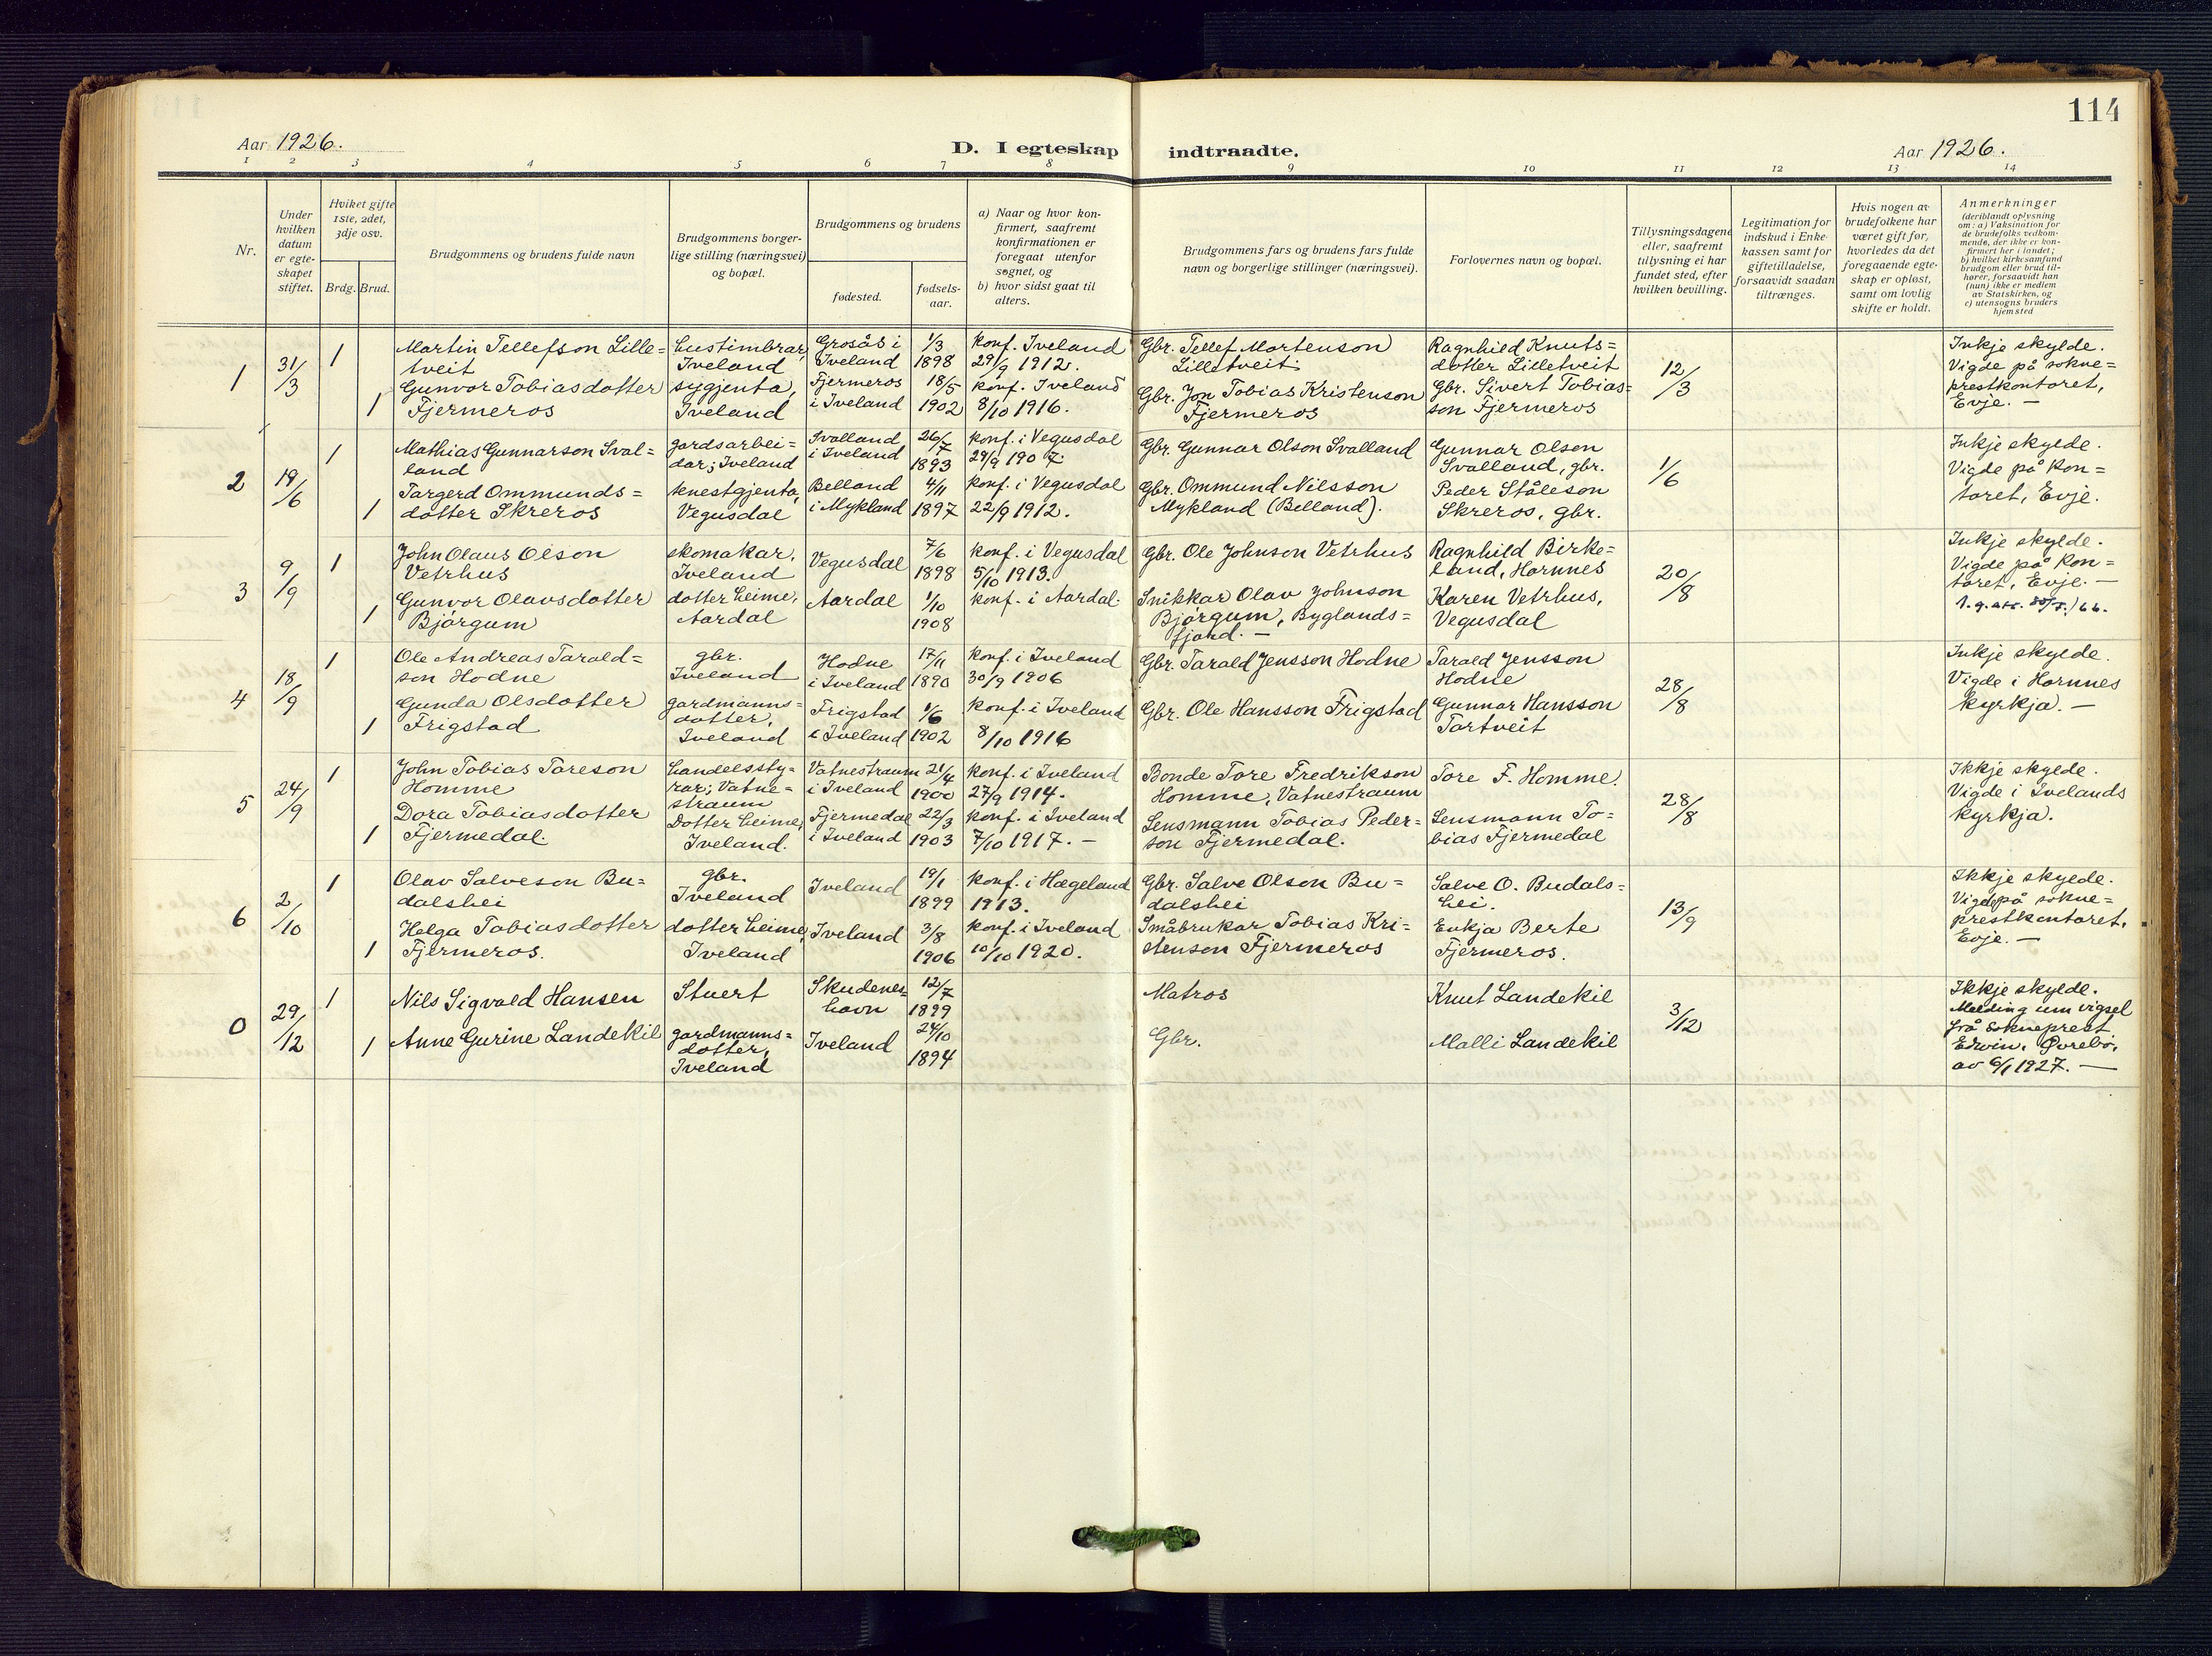 114
Aar 1926.
D. I egteskap indtraadte.
Aar 1926.
1 2 3 4 5 6 7 8 9 10 11 12 13 14
Nr.
Under
hvilken
datum
er egte-
skapet
stiftet.
Hvilket gifte
1ste, 2det,
3dje osv.
Brdg. Brud.
Brudgommens og brudens fulde navn
Brudgommens borger-
lige stilling (næringsvei)
og bopæl.
Brudgommens og brudens
fødested.
fødsels-
aar.
a) Naar og hvor kon-
firmert, saafremt
konfirmationen er
foregaat utenfor
sognet, og
b) hvor sidst gaat til
alters.
Brudgommens fars og brudens fars fulde
navn og borgerlige stillinger (næringsvei).
Forlovernes navn og bopæl.
Tillysningsdagene
eller, saafremt
tillysning ei har
fundet sted, efter
hvilken bevilling.
Legitimation for
indskud i Enke-
kassen samt for
giftetilladelse,
forsaavidt saadan
tiltrænges.
Hvis nogen av
brudefolkene har
været gift før,
hvorledes da det
foregaaende egte-
skap er opløst,
samt om lovlig
skifte er holdt.
Anmerkninger
(deriblandt oplysning
om: a) Vaksination for
de brudefolks vedkom-
mende, der ikke er kon-
firmert her i landet;
b) hvilket kirkesamfund
brudgom eller brud til-
hører, forsaavidt han
(hun) ikke er medlem
av Statskirken, og
c) utensogns bruders
hjemsted
1
31/3
1
Martin Tellefson Lille=
tveit
hustimbrar,
Iveland
Grosås i
Iveland
1/3
1898
konf. Iveland
29/9 1912.
Gbr. Tellef Mortenson
Lilletveit
Ragnhild Knuts=
dotter Lilletveit
12/3
Inkje skylde.
Vigde på sokne=
prestkontoret,
Evje. —
1
Gunvor Tobiasdotter
Fjermeros
sygjenta,
Iveland
Fjermeros
i Iveland
18/5
1902
konf. Iveland
8/10 1916.
Gbr. Jon Tobias Kristenson
Fjermeros
Gbr. Sivert Tobias=
son Fjermeros
2
19/6
1
Mathias Gunnarson Sval=
land
gardsarbei=
dar; Iveland
Svalland
i Iveland
26/7
1893
konf. i Vegusdal
29/9 1907.
Gbr. Gunnar Olson Svalland
Gunnar Olson
Svalland, gbr.
1/6
Inkje skylde.
Vigde på kon=
toret, Evje.
1
Targerd Ommunds=
dotter Skreros
tenestgjenta,
Vegusdal
Belland
i Mykland
4/11
1897
konf. i Vegusdal
22/9 1912.
Gbr. Ommund Nilsson
Mykland (Belland).
Peder Ståleson
Skreros, gbr.
3
9/9
1
John Olaus Olson
Vetrhus
skomakar,
Iveland
Vegusdal
7/6
1898
konf. i Vegusdal
5/10 1913.
Gbr. Ole Johnson Vetrhus
Ragnhild Birke=
land, Hornnes
20/8
Inkje skylde.
Vigde på kon=
toret, Evje. —
1
Gunvor Olavsdotter
Bjørgum
dotter heime,
Aardal
Aardal
1/10
1908
konf. i Aardal.
Snikkar Olav Johnson
Bjørgum, Byglands=
fjord. —
Karen Vetrhus,
Vegusdal
4
18/9
1
Ole Andreas Tarald=
son Hodne
gbr.
Iveland
Hodne
i Iveland
17/11
1890
konf. i Iveland
30/9 1906
Gbr. Tarald Jensson Hodne
Tarald Jensson
Hodne
28/8
Inkje skylde.
Vigde i Hornnes
kyrkja. —
1
Gunda Olsdotter
Frigstad
gardmanns=
dotter,
Iveland
Frigstad
i Iveland
1/6
1902
konf. i Iveland
8/10 1916
Gbr. Ole Hansson Frigstad
Gunnar Hansson
Tortveit
5
24/9
1
John Tobias Toreson
Homme
handelssty=
rar; Vatne=
straum
Vatnestraum
i Iveland
21/4
1900
konf. i Iveland
27/9 1914.
Bonde Tore Fredrikson
Homme, Vatnestraum
Tore F. Homme.
28/8
Ikkje skylde.
Vigde i Ivelands
kyrkja.
1
Dora Tobiasdotter
Fjermedal
Dotter heime,
Iveland.
Fjermedal
i Iveland
22/3
1903
konf. i Iveland
7/10 1917. —
Lensmann Tobias Peder=
son Fjermedal.
Lensmann To=
bias Fjermedal
6
2/10
1
Olav Salveson Bu=
dalshei
gbr.
Iveland
Iveland
19/1
1899
konf. i Hægeland
1913.
Gbr. Salve Olson Bu=
dalshei
Salve O. Budals=
hei.
13/9
Ikkje skylde.
Vigde på sokne=
prestkontoret,
Evje. —
1
Helga Tobiasdotter
Fjermeros.
dotter heime,
Iveland
Iveland
3/8
1906
konf. i Iveland
10/10 1920.
Småbrukar Tobias Kri=
stenson Fjermeros
Enkja Berte
Fjermeros.
0
29/12
1
Nils Sigvald Hansen
Stuert
Skudenes=
havn
12/7
1899
Matros
Knut Landekil
3/12
Ikkje skylde.
Melding um vigsel
frå Sokneprest
Edwin, Øvrebø,
av 6/1 1927. —
1
Anne Gurine Landekil
gardmanns=
dotter,
Iveland
Iveland
24/10
1894
Gbr.
Malli Landekil